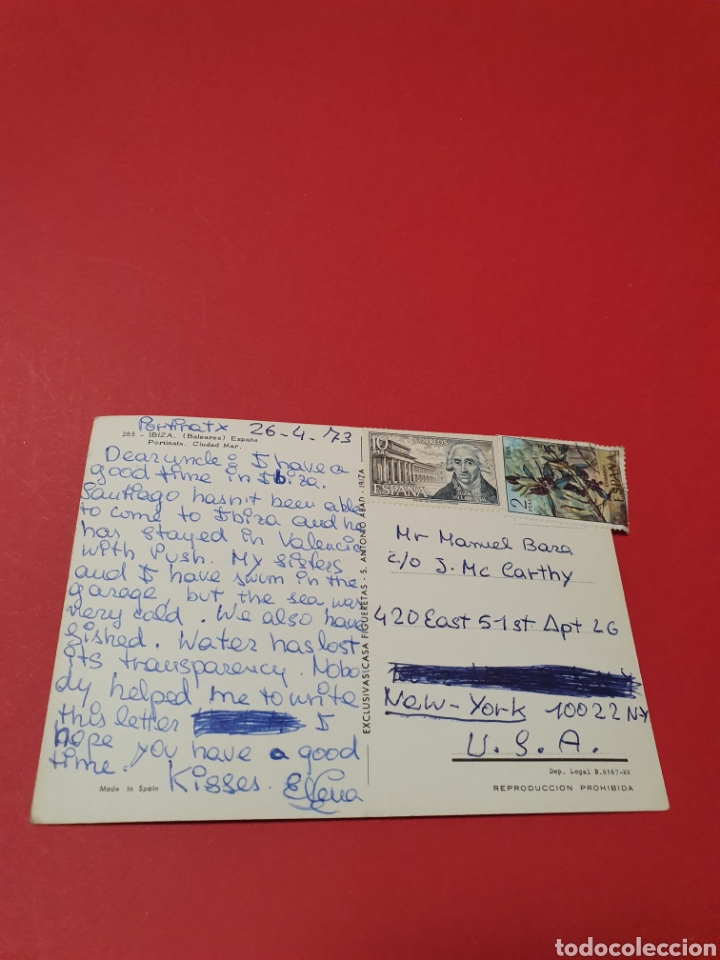 Portinatx 26-4-73
265 - IBIZA. (Baleares) España
Portinatx. Ciudad Mar.
Dear uncle: I have a
good time in Ibiza.
Santiago hasn't been able
to come to Ibiza and he
has stayed in Valencia
with Push. My sisters
and I have swum in the
garage, but the sea was
very cold. We also have
fished. Water has lost
its transparency. Nobo
dy helped me to write
this letter I
hope you have a good
time. Kisses. Elena
Made in Spain
EXCLUSIVAS CASA FIGUERETAS - S. ANTONIO ABAD - IBIZA
10 PTA
CORREOS
JUAN DE VILLANUEVA
ESPAÑA
2 PTA
ESPAÑA
Mr Manuel Baza
c/o J. Mc Carthy
420 East 51st Apt 2G
New-York 10022 NY
U.S.A.
Dep. Legal B.6167-XV
REPRODUCCION PROHIBIDA
todocoleccion